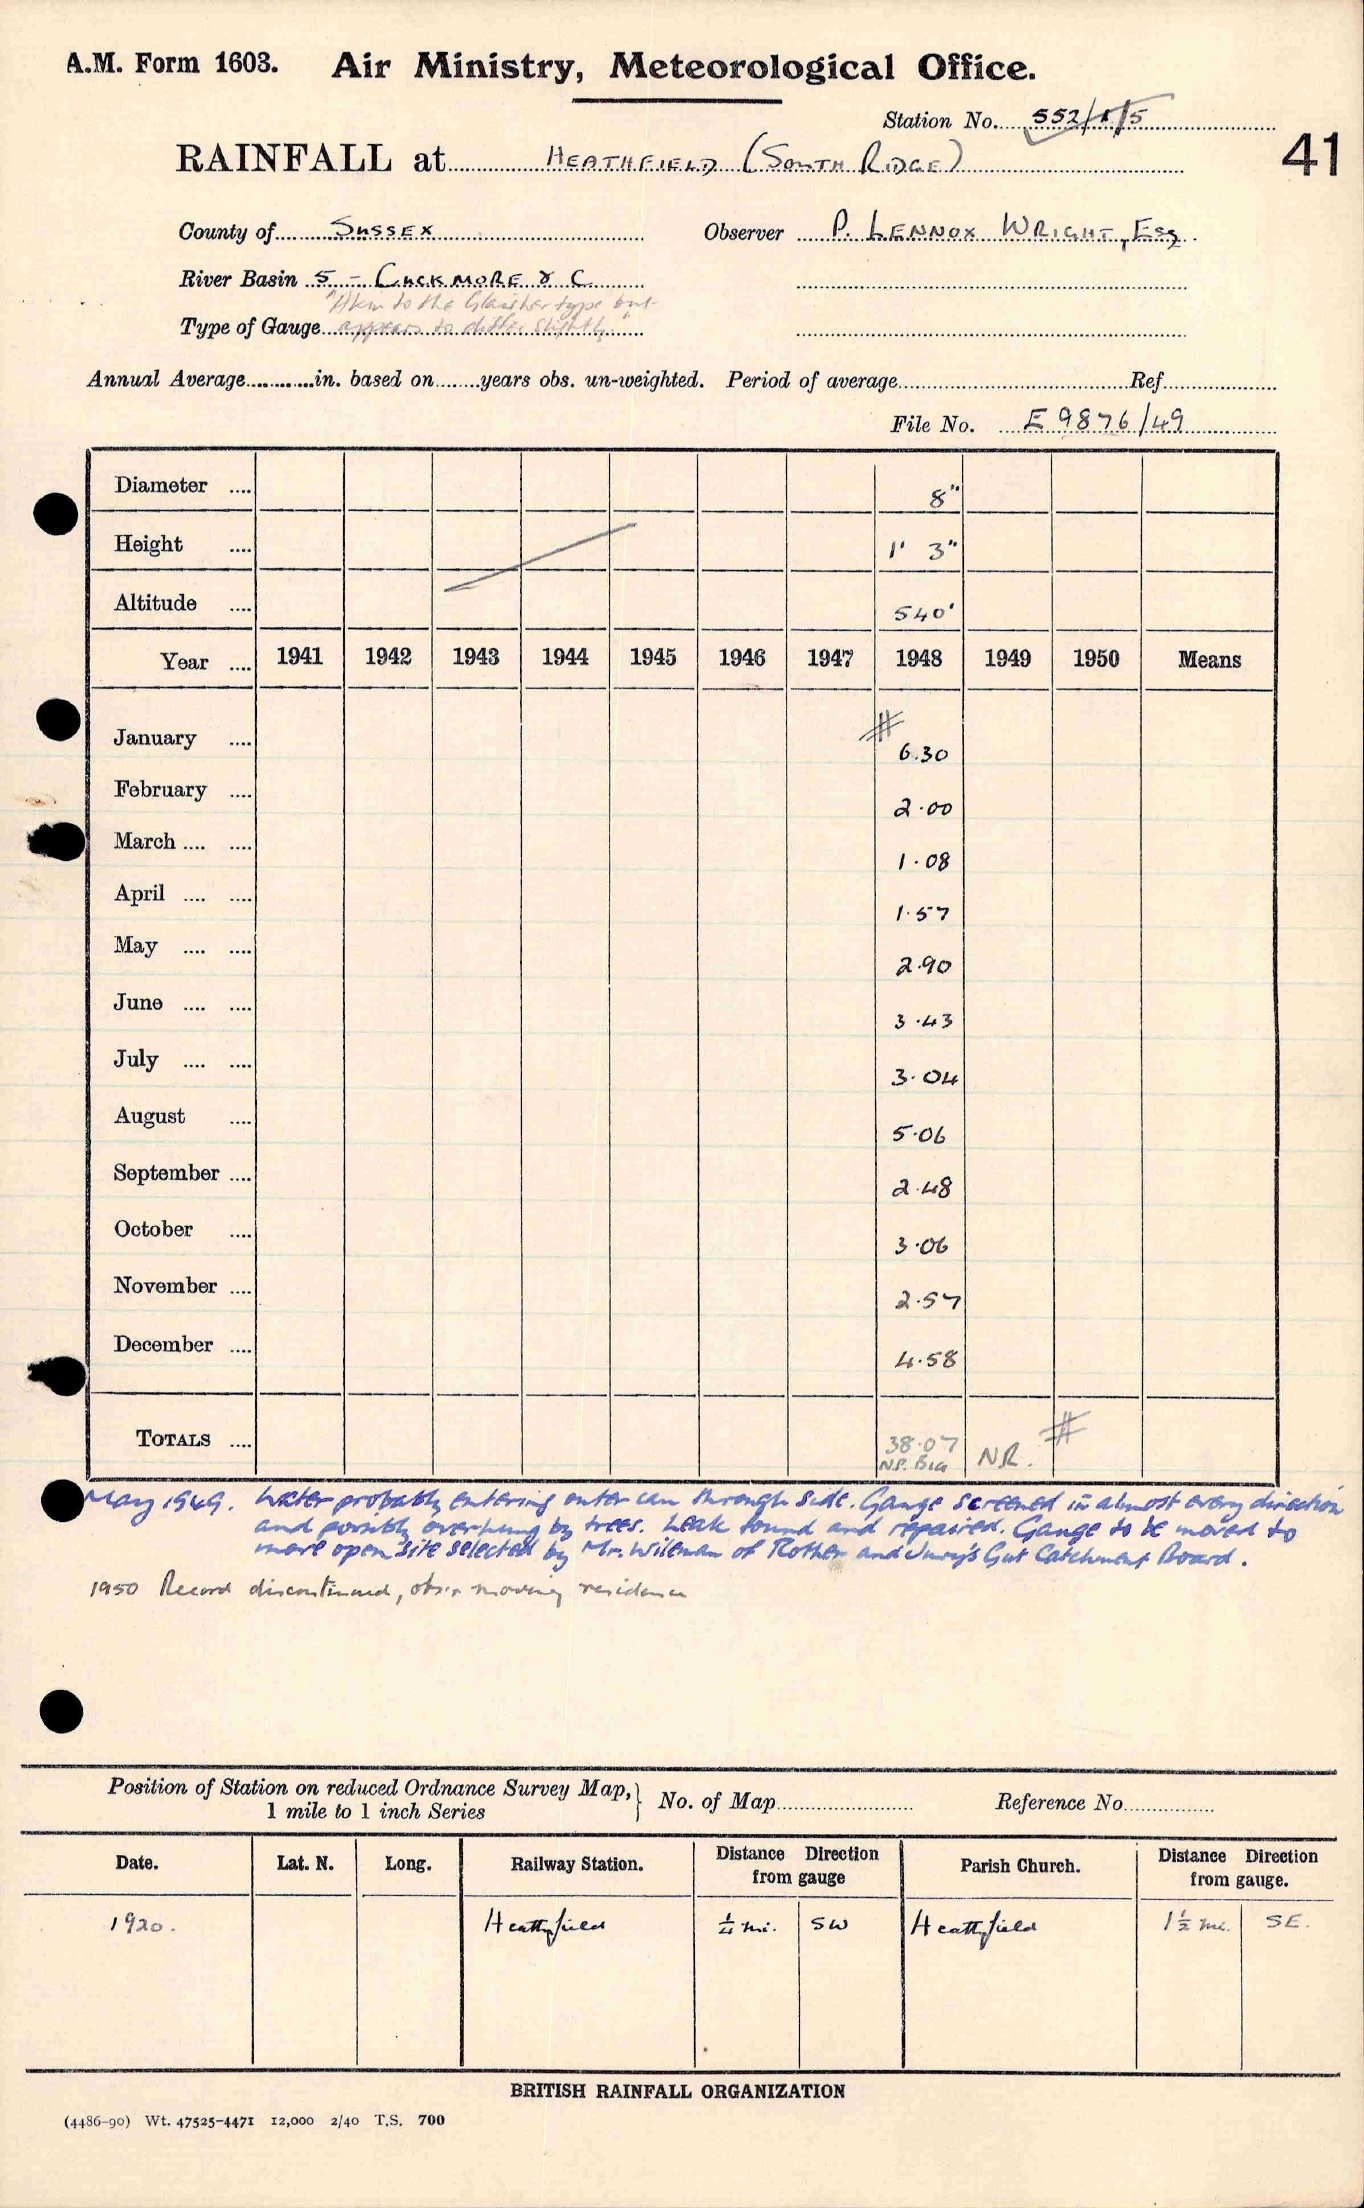 A.M. Form 1603. Air Ministry, Meteorological Office.
Station No. 552/1/5
RAINFALL at HEATHFIELD (SOUTH RIDGE)
41
County of SUSSEX Observer P. LENNOX WRIGHT, Esq.
River Basin 5 - CUCKMORE & C
"Akin to the Glaisher type but
Type of Gauge appears to differ slightly"
Annual Average in. based on years obs. un-weighted. Period of average Ref
File No. E 9876/49
Diameter .... 8"
Height .... 1' 3"
Altitude .... 540'
Year .... 1941 1942 1943 1944 1945 1946 1947 1948 1949 1950 Means
January .... # 6.30
February .... 2.00
March .... .... 1.08
April .... .... 1.57
May .... .... 2.90
June .... .... 3.43
July .... .... 3.04
August .... 5.06
September .... 2.48
October .... 3.06
November .... 2.57
December .... 4.58
TOTALS .... 38.07 NR. #
N.P. Big
May 1949. Water probably entering outer can through side. Gauge screened in almost every direction
and possibly overhung by trees. Leak found and repaired. Gauge to be moved to
more open site selected by Mr. Wileman of Rother and Jury's Gut Catchment Board.
1950 Record discontinued, obsr moving residence
Position of Station on reduced Ordnance Survey Map, } No. of Map Reference No.
1 mile to 1 inch Series
Date. Lat. N. Long. Railway Station. Distance Direction from gauge Parish Church. Distance Direction from gauge.
1920. Heathfield ¼ mi. SW Heathfield 1½ mi. SE.
BRITISH RAINFALL ORGANIZATION
(4486-90) Wt. 47525-4471 12,000 2/40 T.S. 700